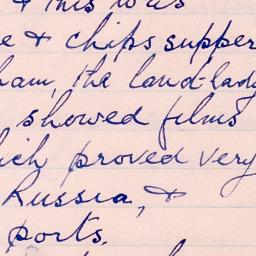 & this was
e & chips supper
ham, the land-lady
showed films
ich proved very
Russia, &
ports.